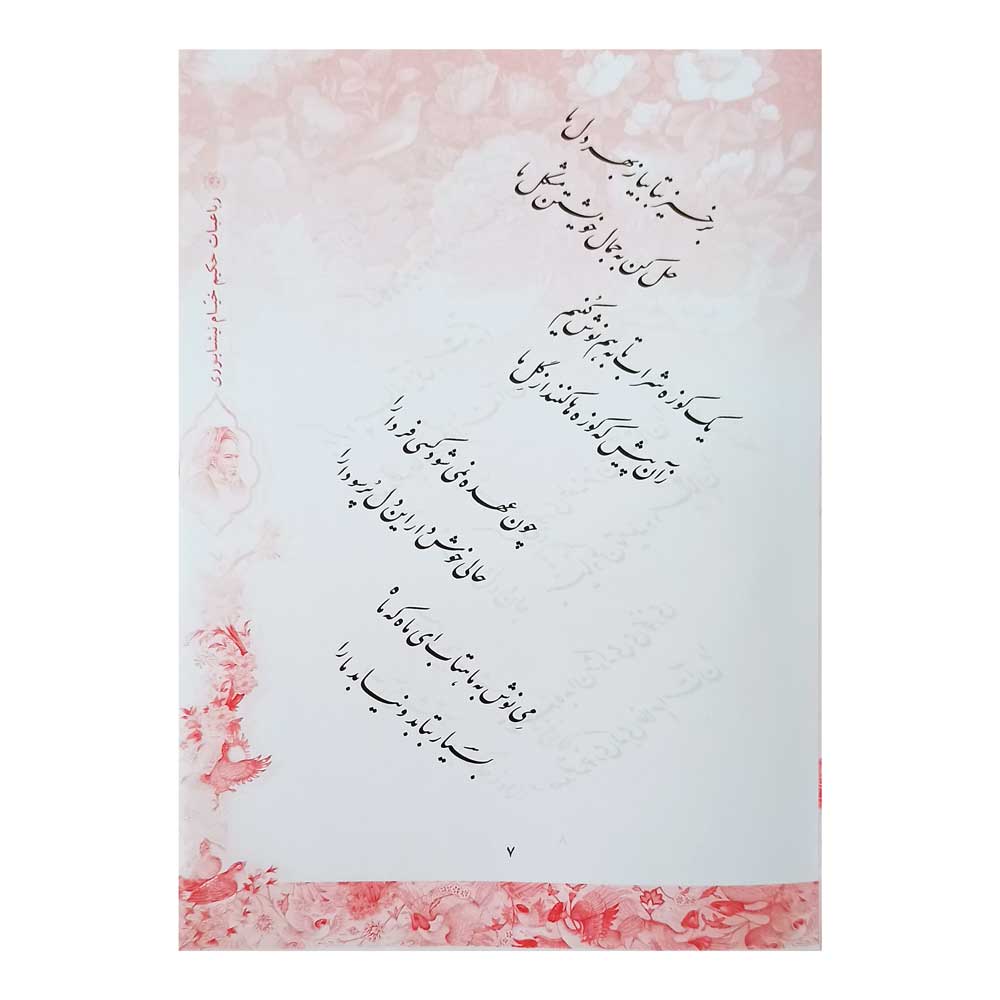 برخیز بتا بیا ز بهر دل ما
حل کن به جمال خویشتن مشکل ما
یک کوزه شراب تا به هم نوش کنیم
زآن پیش که کوزه‌ها کنند از گِل ما
چون عهده نمی شود کسی فردا را
حالی خوش دار این دل پر سودا را
می نوش به ماهتاب ای ماه که ماه
بسیار بتابد و نیابد ما را
رباعیات حکیم خیّام نیشابوری
۷